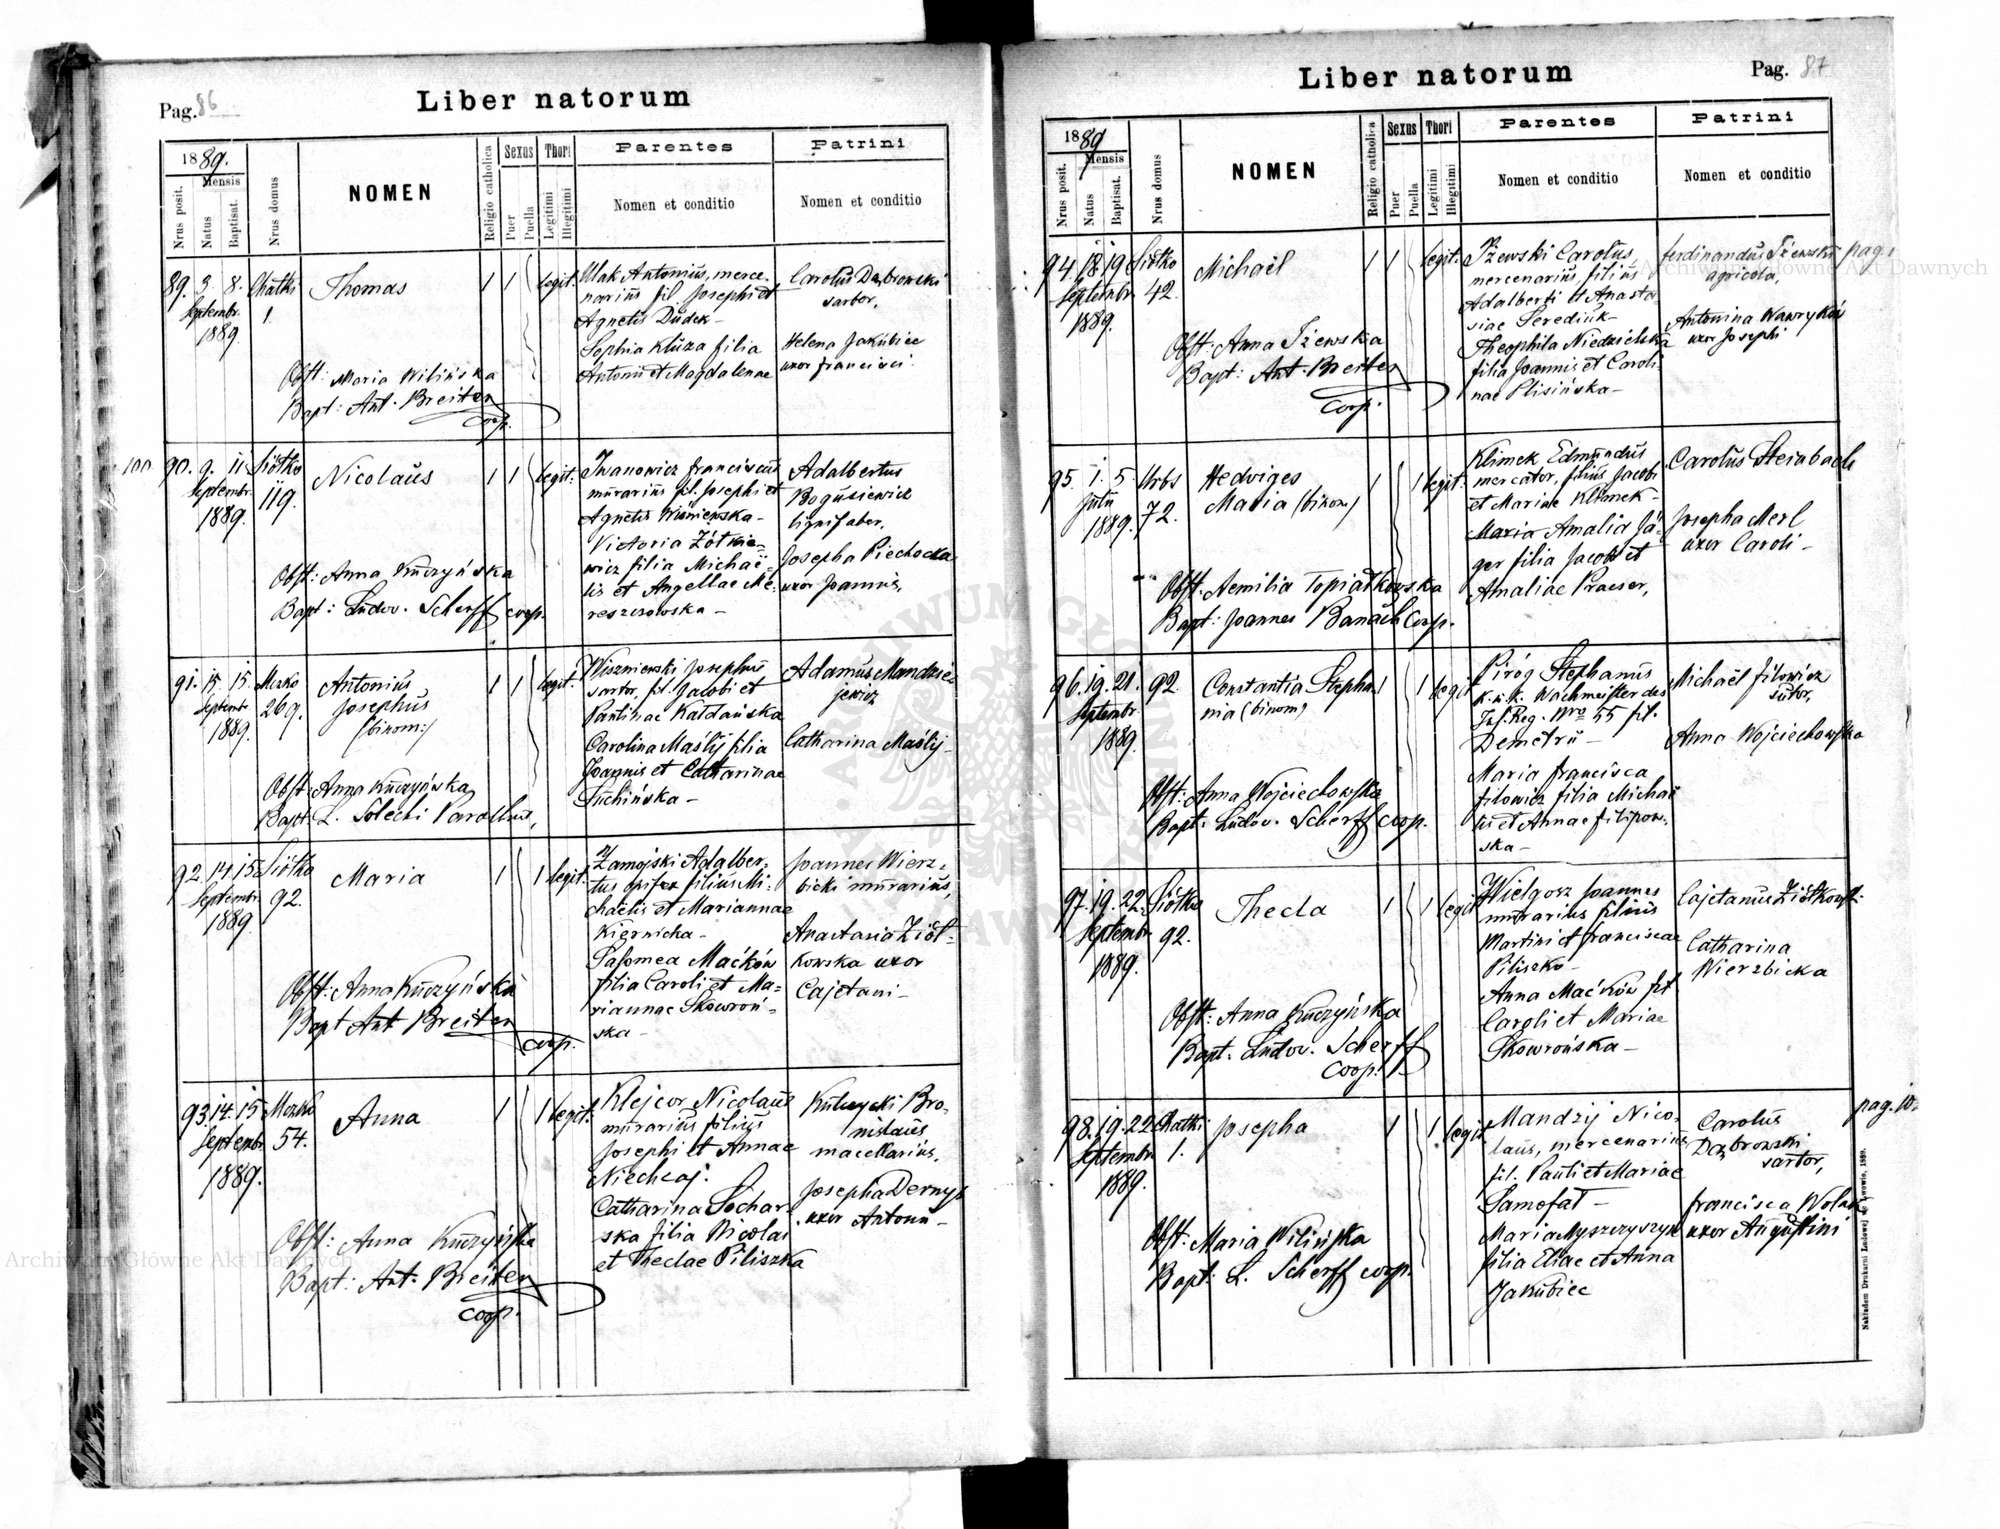 Pag. 86
Liber natorum
1889.
Mensis
Nrus posit.
Natus
Baptisat.
Nrus domus
NOMEN
Religio catholica
Sexus
Puer
Puella
Thori
Legitimi
Illegitimi
Parentes
Nomen et conditio
Patrini
Nomen et conditio
89. 3. 8. Chatki Thomas 1 1 legit.
Septembr. 1.
1889.
Obst: Maria Wilińska
Bapt: Ant. Breiter
coop.
Ulak Antonius, merce-
narius fil. Josephi et
Agnetis Dudek-
Sophia Kluza filia
Antonii et Magdalenae
Carolus Dąbrowski
sartor,
Helena Jakubiec
uxor Francisci
100
90. 9. 11. Siółko Nicolaus 1 1 legit.
Septembr. 119.
1889.
Obst: Anna Kuczyńska
Bapt: Ludov. Scherff coop.
Iwanowicz Franciscus
murarius fil. Josephi et
Agnetis Wiśniewska-
Victoria Żółkie-
wicz filia Michaë-
lis et Angellae Me-
reszczowska-
Adalbertus
Bogusiewicz
lignifaber,
Josepha Piechocka
uxor Joannis,
91. 15. 15. Mzko Antonius 1 1 legit.
Septembr. 269. Josephus
1889. (binom:)
Obst: Anna Kuczyńska
Bapt: L. Solecki Parochus,
Wiszniewski Josephus
sartor, fil. Jacobi et
Paulinae Kałdańska
Carolina Maślij filia
Joannis et Catharinae
Suchińska-
Adamus Mandzie-
jewicz
Catharina Maślij-
92. 14. 15 Siółko Maria 1 1 legit.
Septembr. 92.
1889.
Obst: Anna Kuczyńska
Bapt Ant Breiter
coop.
Zamojski Adalber-
tus opifex filius Mi-
chaëlis et Mariannae
Kiernicka-
Salomea Maćków
filia Caroli et Ma-
riannae Skowroń-
ska-
Joannes Wierz-
bicki murarius,
Anastasia Ziół-
kowska uxor
Cajetani-
93. 14. 15 Mzko Anna 1 1 legit.
Septembr. 54.
1889.
Obst: Anna Kuczyńska
Bapt: Ant. Breiter
coop.
Klejcor Nicolaus
murarius filius
Josephi et Annae
Niechcaj.
Catharina Sochar-
ska filia Nicolai
et Theclae Piliszka
Kulczycki Bro-
nislaus
macellarius,
Josepha Dernyk
uxor Antonii-
Liber natorum
Pag. 87
1889
Mensis
Nrus posit.
Natus
Baptisat.
Nrus domus
NOMEN
Religio catholica
Sexus
Puer
Puella
Thori
Legitimi
Illegitimi
Parentes
Nomen et conditio
Patrini
Nomen et conditio
94. 18. 19 Siółko Michaël 1 1 legit.
Septembr. 42.
1889.
Obst: Anna Iżewska
Bapt: Ant. Breiter
coop.
Iżewski Carolus,
mercenarius, filius
Adalberti et Anasta-
siae Serediuk-
Theophila Niedzielska
filia Joannis et Caroli-
nae Plisińska-
Ferdinandus Iżewski pag.
agricola,
Antonina Wawryków
uxor Josephi
95. 1. 5. Urbs Hedviges 1 1 legit.
Julii 72. Maria (binom)
1889.
Obst: Aemilia Topiatkowska
Bapt: Joannes Banach Coop.
Klimek Edmundus
mercator, filius Jacobi
et Mariae Klimek-
Maria Amalia Jä-
ger filia Jacobi et
Amaliae Praeser,
Carolus Steinbach
Josepha Merl
uxor Caroli-
96. 19. 21. 92. Constantia Stepha- 1 1 legit
Septembr. nia (binom)
1889.
Obst: Anna Wojciechowska
Bapt: Ludov. Scherff coop.
Piróg Stephanus
k. u. k. Wachmeister des
Inf. Reg. Nro 55 fil.
Demetrii-
Maria Francisca
Filowicz filia Michaë-
lis et Annae Filipow-
ska-
Michaël Filowicz
sutor,
Anna Wojciechowska
97. 19. 22. Siółko Thecla 1 1 legit
Septembr. 92.
1889.
Obst: Anna Kuczyńska
Bapt: Ludov. Scherff
Coop.
Wielgosz Joannes
murarius filius
Martini et Franciscae
Piliszko-
Anna Maćków fil.
Caroli et Mariae
Skowrońska-
Cajetanus Ziółkowski
Catharina
Wierzbicka
98. 19. 22 Chatki Josepha 1 1 legit
Septembr. 1.
1889.
Obst: Maria Wilińska
Bapt: L. Scherff coop.
Mandzij Nico-
laus, mercenarius
fil. Pauli et Mariae
Samofał-
Maria Myszczyszyn
filia Eliae et Anna
Jakubiec
Carolus
Dąbrowski
sartor,
Francisca Wolak
uxor Augustini
pag. 10.
Nakładem Drukarni Ludowej we Lwowie, 1889.
Archiwum Główne Akt Dawnych
Archiwum Główne Akt Dawnych
ARCHIWUM GŁÓWNE AKT DAWNYCH